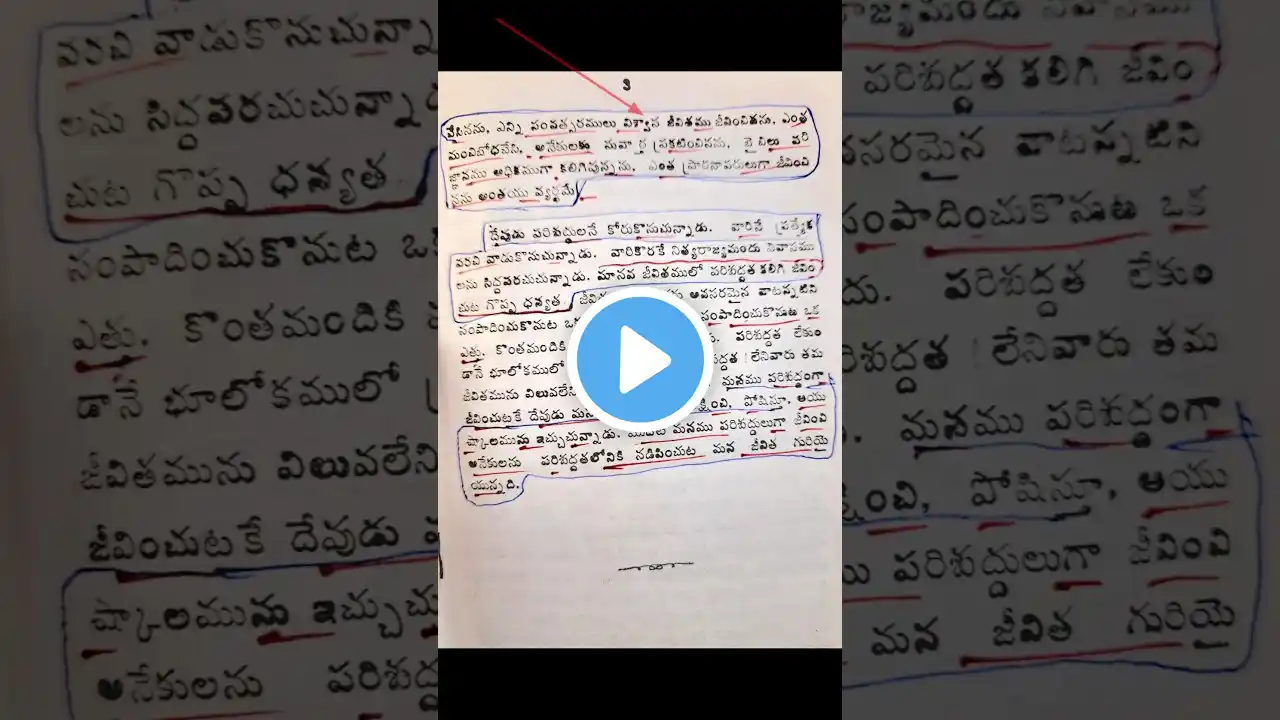 3
చేసినను, ఎన్ని సంవత్సరములు విశ్వాస జీవితము జీవించినను, ఎంత
మంచిబోధచేసి, అనేకులకు సువార్త ప్రకటించినను. బైబిలు పరి
జ్ఞానము అధికముగా కలిగివున్నను, ఎంత ప్రార్థనాపరులుగా జీవించి
నను అంతయు వ్యర్థమే.
దేవుడు పరిశుద్ధులనే కోరుకొనుచున్నాడు. వారినే ప్రత్యేక
పరచి వాడుకొనుచున్నాడు. వారికొరకే నిత్యరాజ్యమందు నివాసము
లను సిద్దపరచుచున్నాడు. మానవ జీవితములో పరిశుద్ధత కలిగి జీవిం
చుట గొప్ప ధన్యత. అవసరమైన వాటన్నటిని
సంపాదించుకొనుట సంపాదించుకొనుట ఒక
ఎత్తు. కొంతమందికి పరిశుద్ధత లేకుం
డానే భూలోకములో పరిశుద్ధత లేనివారు తమ
జీవితమును విలువలేని మనము పరిశుద్ధంగా
జీవించుటకే దేవుడు పోషిస్తూ, ఆయు
ష్కాలమును ఇచ్చుచున్నాడు. మనము పరిశుద్ధులుగా జీవించి
అనేకులను పరిశుద్ధతలోనికి నడిపించుట మన జీవిత గురియై
యున్నది.